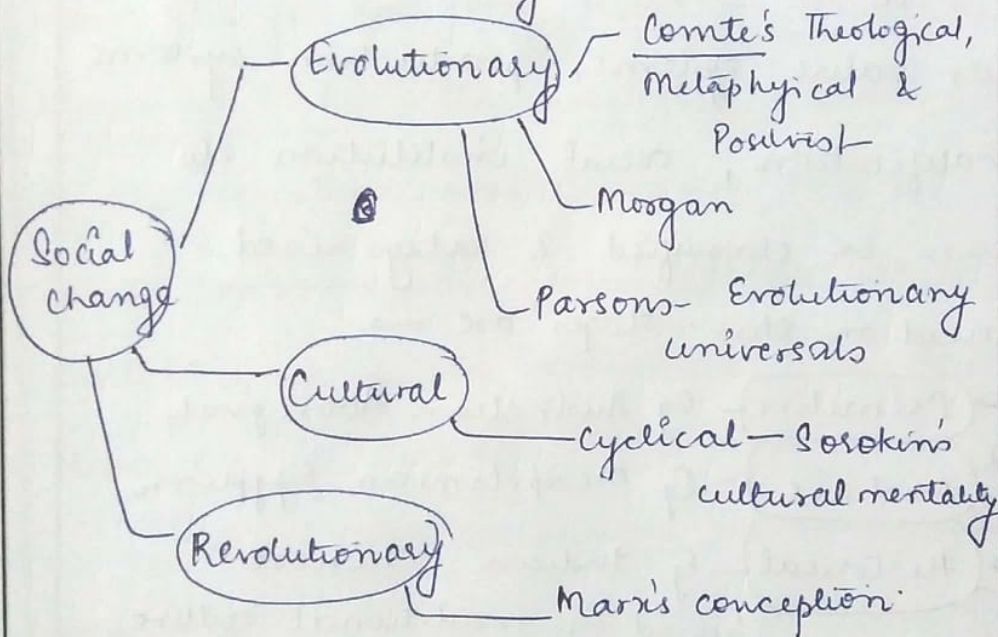 Evolutionary
Comte's Theological,
Metaphyical &
Positivist
Morgan
Social
change
Parsons- Evolutionary
universals
Cultural
Cyclical — Sorokin's
cultural mentality
Revolutionary
Marx's conception.